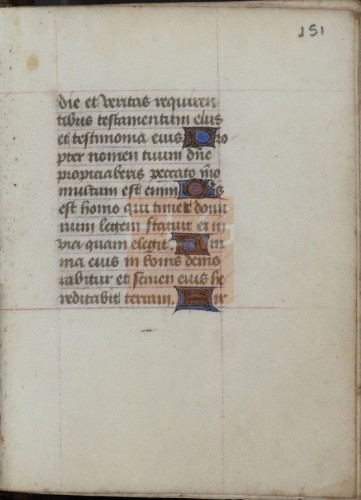 151
die et veritas requiren
tibus testamentum eius
et testimonia eius. Pro
pter nomen tuum dñe
propiciaberis peccato meo
multum est enim Quis
est homo qui timet domi
num legem statuit ei in
via quam elegit. Ani
ma eius in bonis demo
rabitur et semen eius he
reditabit terram. Fir